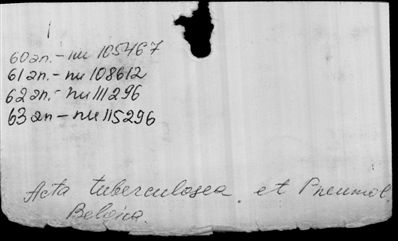 1
60 an. - nu 105467
61 an. - nu 108612
62 an. - nu 111296
63 an - nu 115296
Acta tuberculosea et Pneumol.
Belgica.